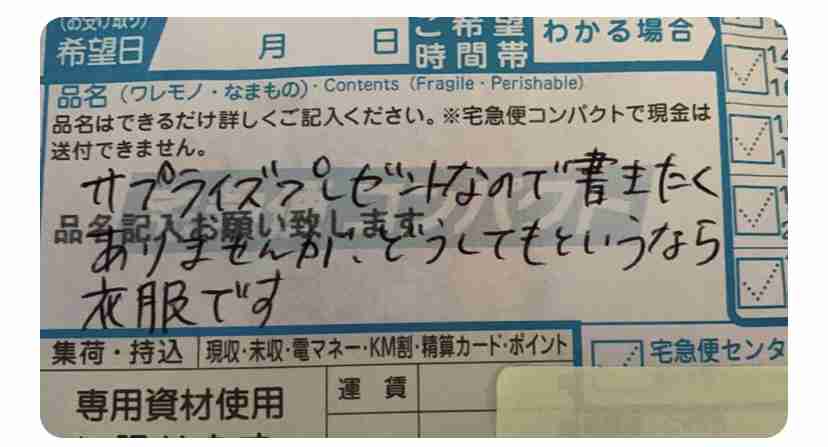 (お受け取り)
希望日
月 日
ご希望
時間帯
わかる場合
品名（ワレモノ・なまもの）・Contents（Fragile・Perishable）
品名はできるだけ詳しくご記入ください。※宅急便コンパクトで現金は
送付できません。
サプライズプレゼントなので書きたく
品名記入お願い致します
ありませんが、どうしてもというなら
衣服です
集荷・持込
現収・未収・電マネー・KM割・精算カード・ポイント
宅急便センタ
運賃
専用資材使用